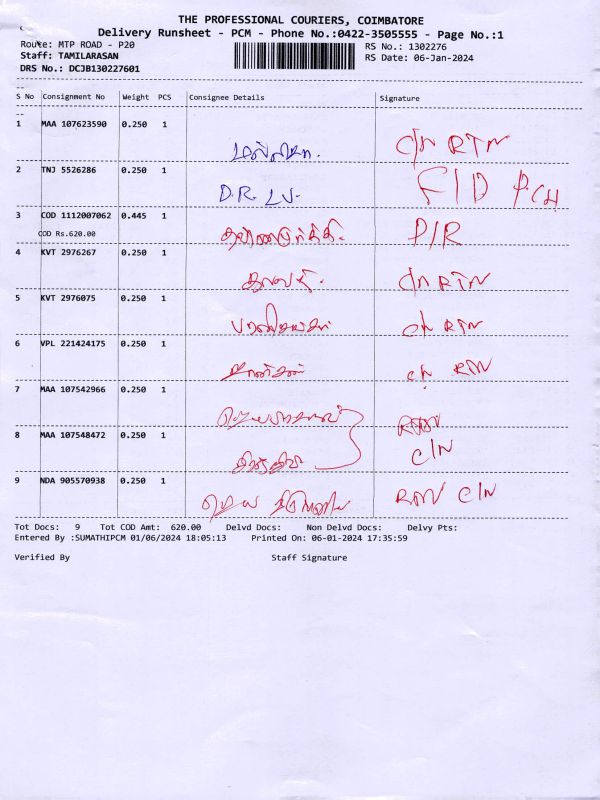 THE PROFESSIONAL COURIERS, COIMBATORE
Delivery Runsheet - PCM - Phone No.:0422-3505555 - Page No.:1
Route: MTP ROAD - P20
RS No.: 1302276
Staff: TAMILARASAN
RS Date: 06-Jan-2024
DRS No.: DCJB130227601
S No Consignment No Weight PCS Consignee Details Signature
1 MAA 107623590 0.250 1 C/N RTN
2 TNJ 5526286 0.250 1 D.R. LV. F/D PCM
3 COD 1112007062 0.445 1 P/R
COD Rs.620.00
4 KVT 2976267 0.250 1 C/N RTN
5 KVT 2976075 0.250 1 C/N RTN
6 VPL 221424175 0.250 1 C/N RTN
7 MAA 107542966 0.250 1 RTN
8 MAA 107548472 0.250 1 C/N
9 NDA 905570938 0.250 1 RTN C/N
Tot Docs: 9 Tot COD Amt: 620.00 Delvd Docs: Non Delvd Docs: Delvy Pts:
Entered By :SUMATHIPCM 01/06/2024 18:05:13 Printed On: 06-01-2024 17:35:59
Verified By Staff Signature